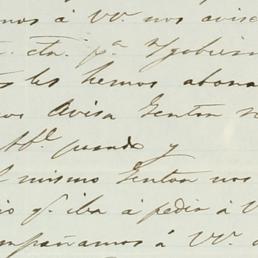 mos á VV. nos avisa
cta. pa. n/gobierno
les hemos abona
os Avisa Genton
pasado y
l mismo Genton nos
io q. iba á pedir á V
ompañamos á VV.